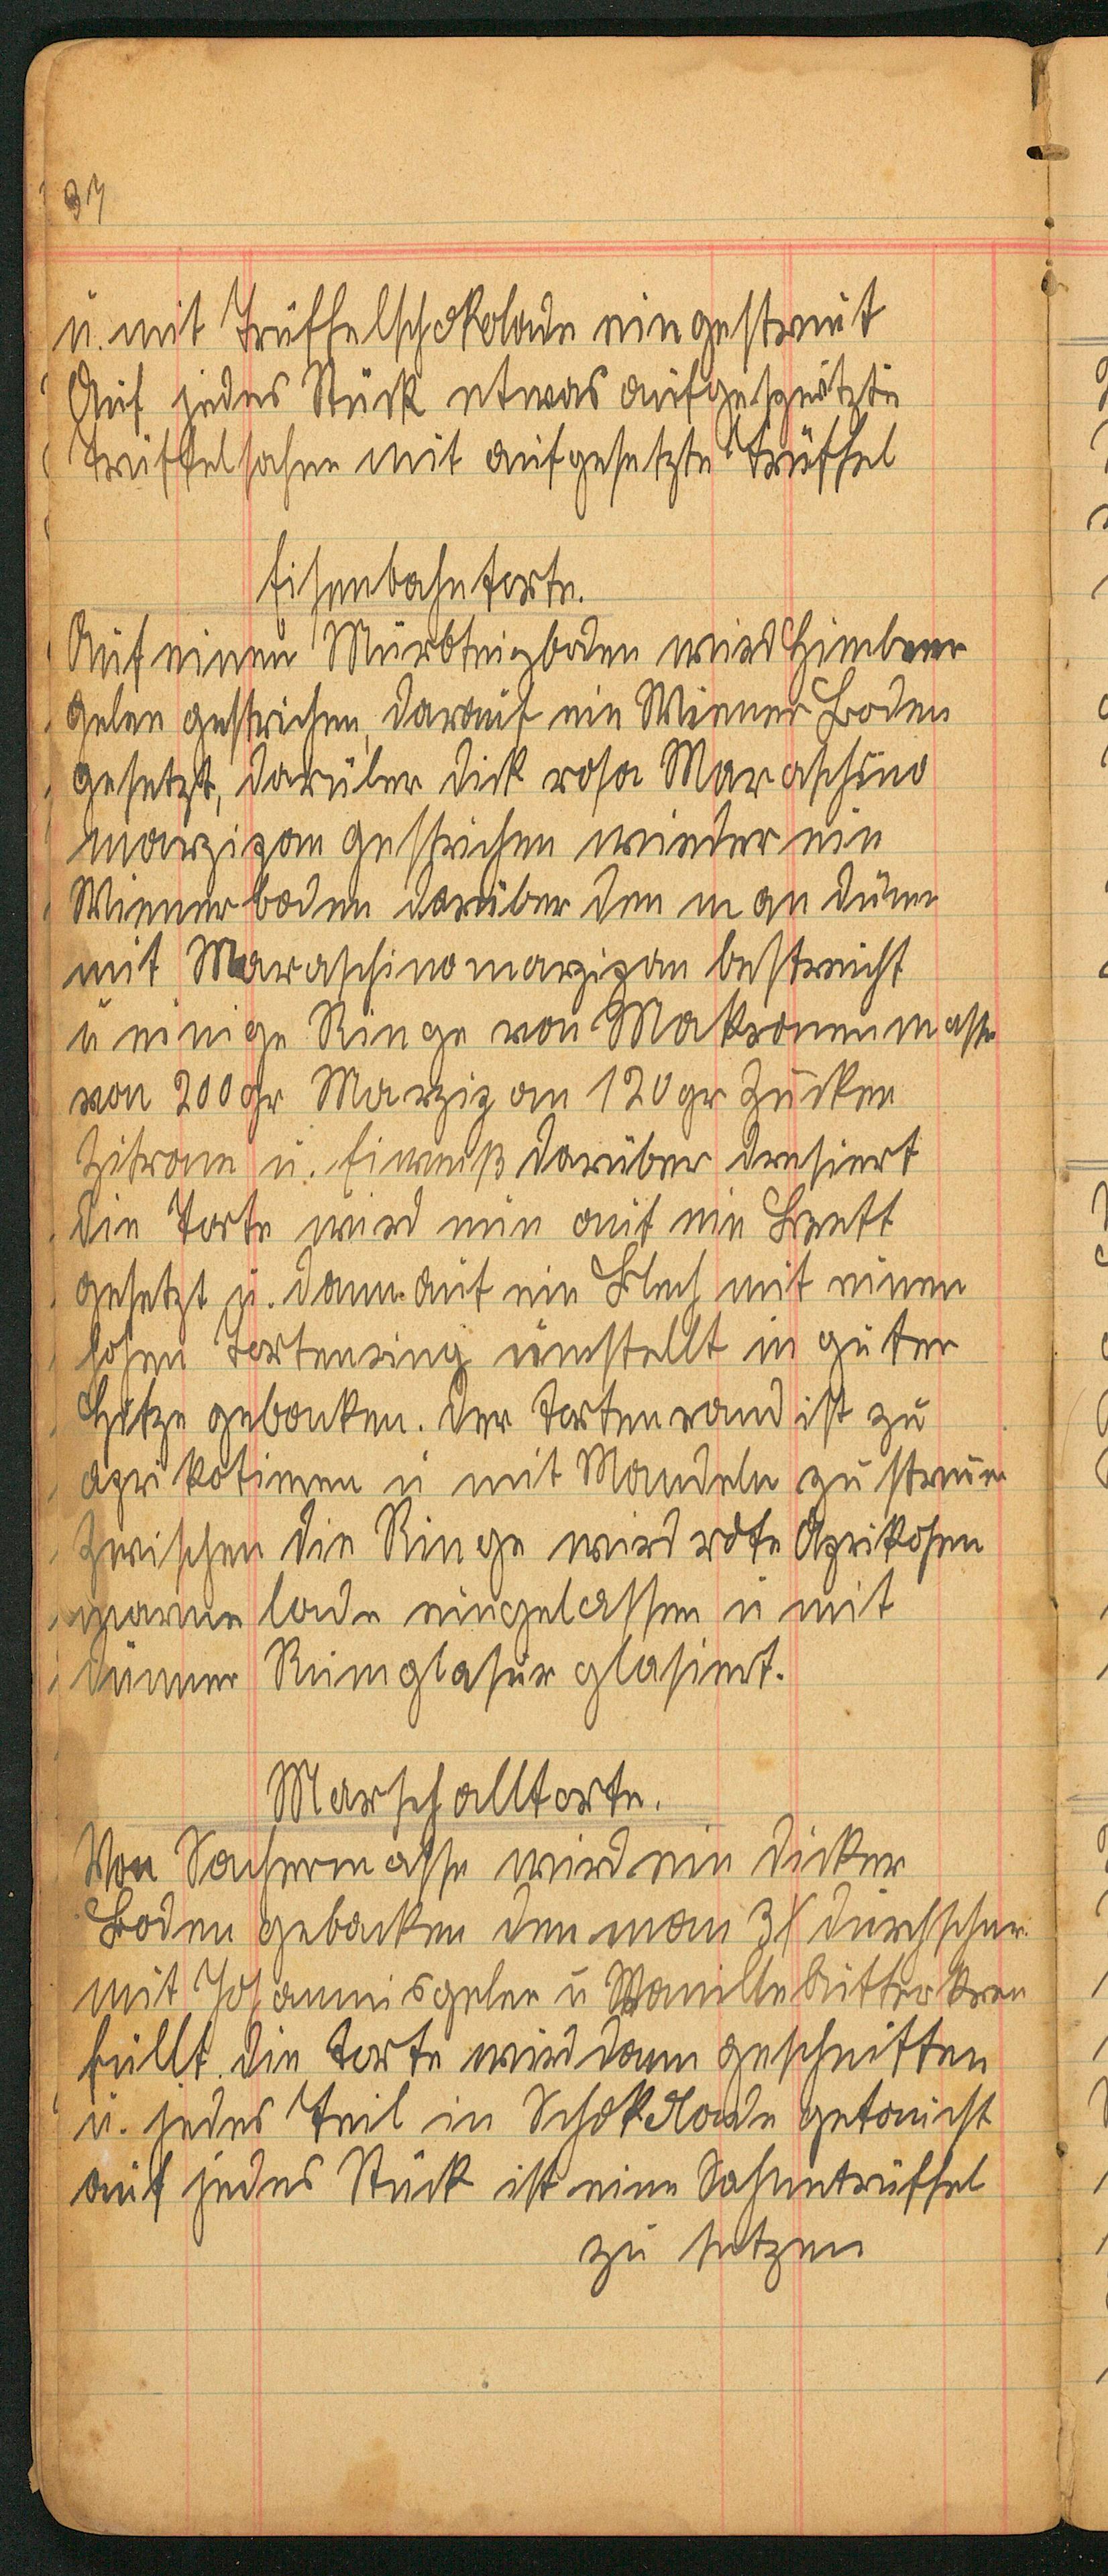 37
u. mit Trüffelschokolade eingestreut
Auf jedes Stück etwas aufgespritzte
Trüffelsahne mit aufgesetzte Trüffel
Eisenbahntorte.
Auf einen Mürbteigboden wird Himbeer
gelee gestrichen, darauf ein Wiener Boden
gesetzt, darüber dick rosa Maraschino
marzipan gestrichen wieder ein
Wienerboden darüber den man dünn
mit Maraschinomarzipan bestreicht
u einige Ringe von Makronenmasse
von 200gr Marzipan 120gr Zucker
Zitrone u. Eiweiß darüber dresiert
die Torte wird nun auf ein Brett
gesetzt u. dann auf ein Blech mit einen
hohen Tortenring umstellt in guter
Hitze gebacken. der Tortenrand ist zu
aprikotieren u mit Mandeln zu streun
Zwischen die Ringe wird rote Aprikosen
marmelade eingelassen u mit
dünner Rumglasur glasiert.
Marschalltorte.
Von Sachermasse wird ein dicker
Boden gebacken den man 3x durchschn.
mit Johannisgelee u Vanille
füllt. die Torte wird dann geschnitten
u. jedes Teil in Schokolade getaucht
auf jedes Stück ist eine Sahnetrüffel
zu setzen